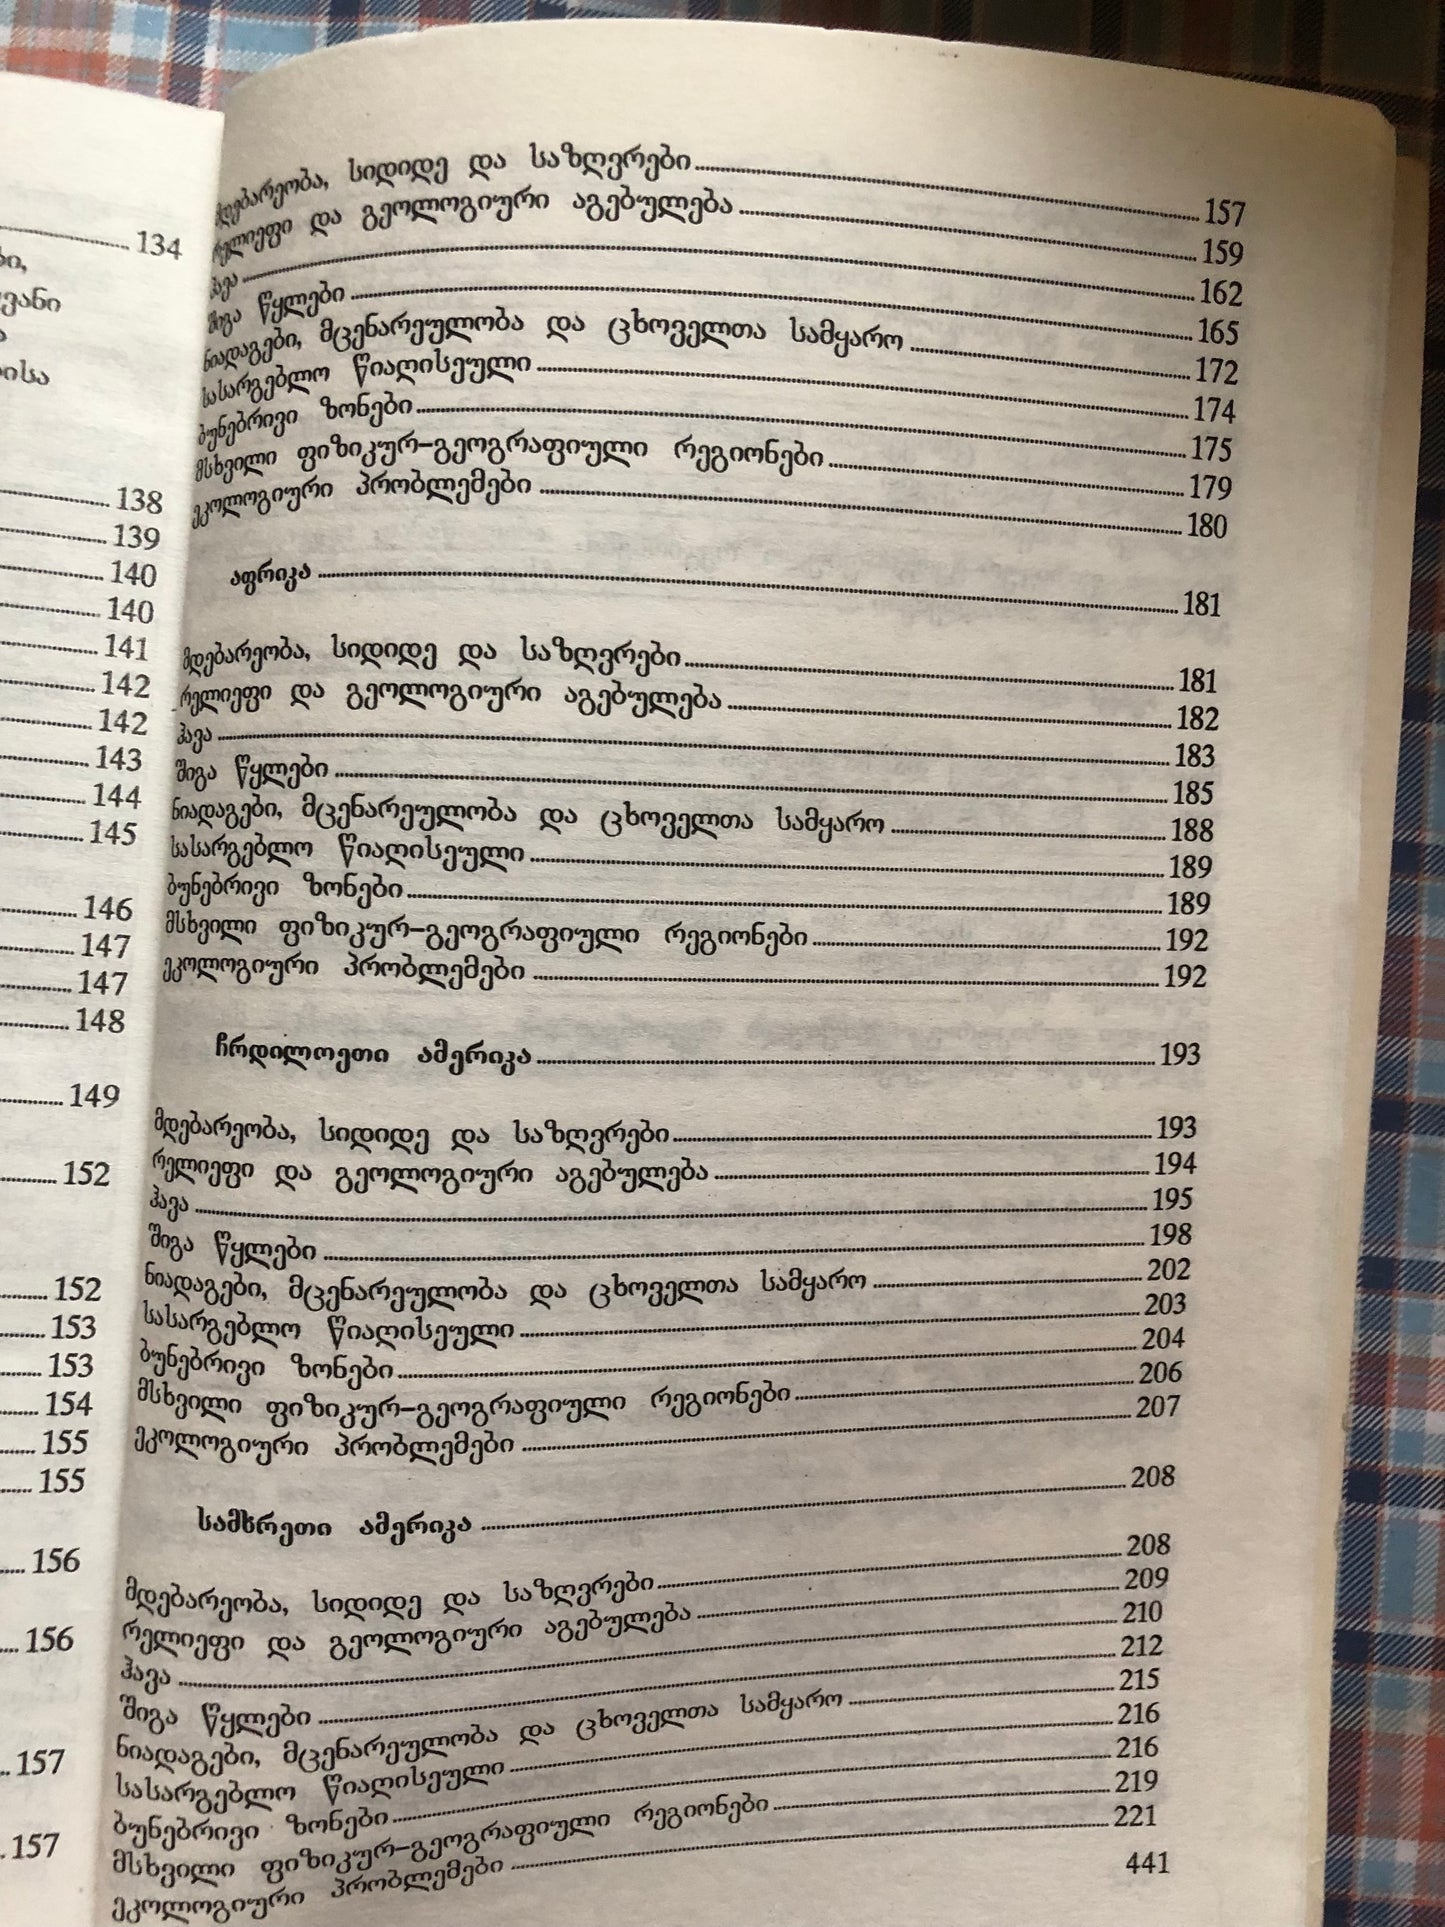 134
ბი,
ვანი
ისა
138
139
140
140
141
142
142
143
144
145
146
147
147
148
149
152
152
153
153
154
155
155
156
156
157
157
მდებარეობა, სიდიდე და საზღვრები 157
რელიეფი და გეოლოგიური აგებულება 159
ჰავა 162
შიგა წყლები 165
ნიადაგები, მცენარეულობა და ცხოველთა სამყარო 172
სასარგებლო წიაღისეული 174
ბუნებრივი ზონები 175
მსხვილი ფიზიკურ-გეოგრაფიული რეგიონები 179
ეკოლოგიური პრობლემები 180
აფრიკა 181
მდებარეობა, სიდიდე და საზღვრები 181
რელიეფი და გეოლოგიური აგებულება 182
ჰავა 183
შიგა წყლები 185
ნიადაგები, მცენარეულობა და ცხოველთა სამყარო 188
სასარგებლო წიაღისეული 189
ბუნებრივი ზონები 189
მსხვილი ფიზიკურ-გეოგრაფიული რეგიონები 192
ეკოლოგიური პრობლემები 192
ჩრდილოეთი ამერიკა 193
მდებარეობა, სიდიდე და საზღვრები 193
რელიეფი და გეოლოგიური აგებულება 194
ჰავა 195
შიგა წყლები 198
ნიადაგები, მცენარეულობა და ცხოველთა სამყარო 202
სასარგებლო წიაღისეული 203
ბუნებრივი ზონები 204
მსხვილი ფიზიკურ-გეოგრაფიული რეგიონები 206
ეკოლოგიური პრობლემები 207
სამხრეთი ამერიკა 208
მდებარეობა, სიდიდე და საზღვრები 208
რელიეფი და გეოლოგიური აგებულება 209
ჰავა 210
შიგა წყლები 212
ნიადაგები, მცენარეულობა და ცხოველთა სამყარო 215
სასარგებლო წიაღისეული 216
ბუნებრივი ზონები 216
მსხვილი ფიზიკურ-გეოგრაფიული რეგიონები 219
ეკოლოგიური პრობლემები 221
441